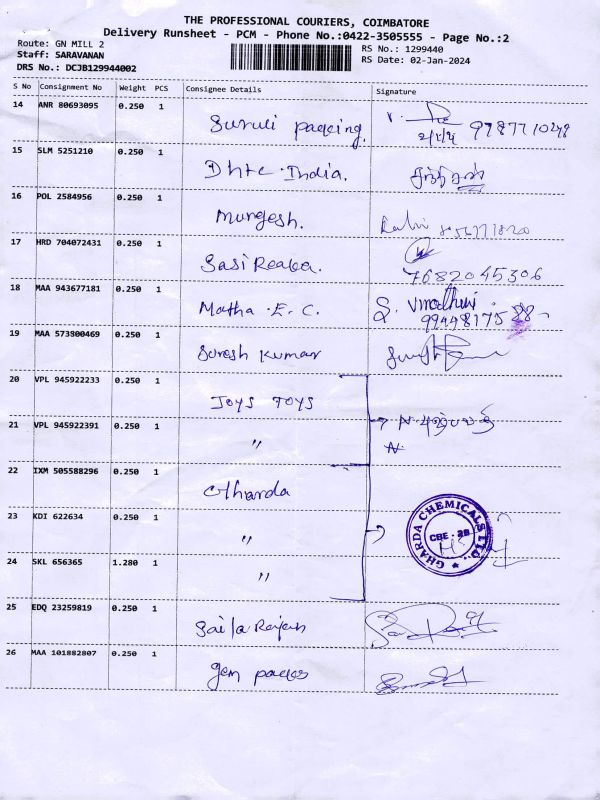 THE PROFESSIONAL COURIERS, COIMBATORE
Delivery Runsheet - PCM - Phone No.:0422-3505555 - Page No.:2
Route: GN MILL 2
RS No.: 1299440
Staff: SARAVANAN
RS Date: 02-Jan-2024
DRS No.: DCJB129944002
S No Consignment No Weight PCS Consignee Details Signature
14 ANR 80693095 0.250 1 Suruli packing.
15 SLM 5251210 0.250 1 Dhtc India.
16 POL 2584956 0.250 1 Murgesh.
17 HRD 704072431 0.250 1 Sasi Reaka. 7682045306
18 MAA 943677181 0.250 1 Matha E.C. S. Vinodhini
19 MAA 573800469 0.250 1 Suresh Kumar
20 VPL 945922233 0.250 1 Joys Toys
21 VPL 945922391 0.250 1 "
22 IXM 505588296 0.250 1 Gharda
23 KDI 622634 0.250 1 " GHARDA CHEMICALS LTD. CBE - 29
24 SKL 656365 1.280 1 "
25 EDQ 23259819 0.250 1 Sailarajan
26 MAA 101882807 0.250 1 gem packs